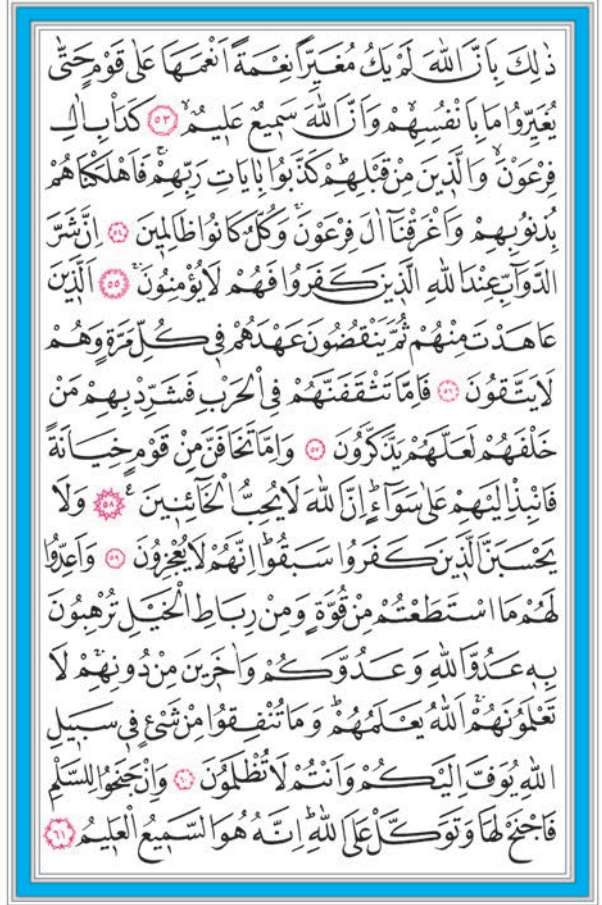 ذٰلِكَ بِاَنَّ اللّٰهَ لَمْ يَكُ مُغَيِّرًا نِعْمَةً اَنْعَمَهَا عَلٰى قَوْمٍ حَتّٰى
يُغَيِّرُوا مَا بِاَنْفُسِهِمْۙ وَاَنَّ اللّٰهَ سَمِيعٌ عَلِيمٌۙ ﴿٥٣﴾ كَدَأْبِ اٰلِ
فِرْعَوْنَۙ وَالَّذِينَ مِنْ قَبْلِهِمْۜ كَذَّبُوا بِاٰيَاتِ رَبِّهِمْۚ فَاَهْلَكْنَاهُمْ
بِذُنُوبِهِمْ وَاَغْرَقْنَٓا اٰلَ فِرْعَوْنَۚ وَكُلٌّ كَانُوا ظَالِمِينَ ﴿٥٤﴾ اِنَّ شَرَّ
الدَّوَٓابِّ عِنْدَ اللّٰهِ الَّذِينَ كَفَرُوا فَهُمْ لَا يُؤْمِنُونَۚ ﴿٥٥﴾ اَلَّذِينَ
عَاهَدْتَ مِنْهُمْ ثُمَّ يَنْقُضُونَ عَهْدَهُمْ فِي كُلِّ مَرَّةٍ وَهُمْ
لَا يَتَّقُونَ ﴿٥٦﴾ فَاِمَّا تَثْقَفَنَّهُمْ فِي الْحَرْبِ فَشَرِّدْ بِهِمْ مَنْ
خَلْفَهُمْ لَعَلَّهُمْ يَذَّكَّرُونَ ﴿٥٧﴾ وَاِمَّا تَخَافَنَّ مِنْ قَوْمٍ خِيَانَةً
فَانْبِذْ اِلَيْهِمْ عَلٰى سَوَٓاءٍۜ اِنَّ اللّٰهَ لَا يُحِبُّ الْخَٓائِنِينَ۟ ﴿٥٨﴾ وَلَا
يَحْسَبَنَّ الَّذِينَ كَفَرُوا سَبَقُواۜ اِنَّهُمْ لَا يُعْجِزُونَ ﴿٥٩﴾ وَاَعِدُّوا
لَهُمْ مَا اسْتَطَعْتُمْ مِنْ قُوَّةٍ وَمِنْ رِبَاطِ الْخَيْلِ تُرْهِبُونَ
بِهِ عَدُوَّ اللّٰهِ وَعَدُوَّكُمْ وَاٰخَرِينَ مِنْ دُونِهِمْۚ لَا
تَعْلَمُونَهُمْۚ اَللّٰهُ يَعْلَمُهُمْۜ وَمَا تُنْفِقُوا مِنْ شَيْءٍ فِي سَبِيلِ
اللّٰهِ يُوَفَّ اِلَيْكُمْ وَاَنْتُمْ لَا تُظْلَمُونَ ﴿٦٠﴾ وَاِنْ جَنَحُوا لِلسَّلْمِ
فَاجْنَحْ لَهَا وَتَوَكَّلْ عَلَى اللّٰهِۜ اِنَّهُ هُوَ السَّمِيعُ الْعَلِيمُ ﴿٦١﴾